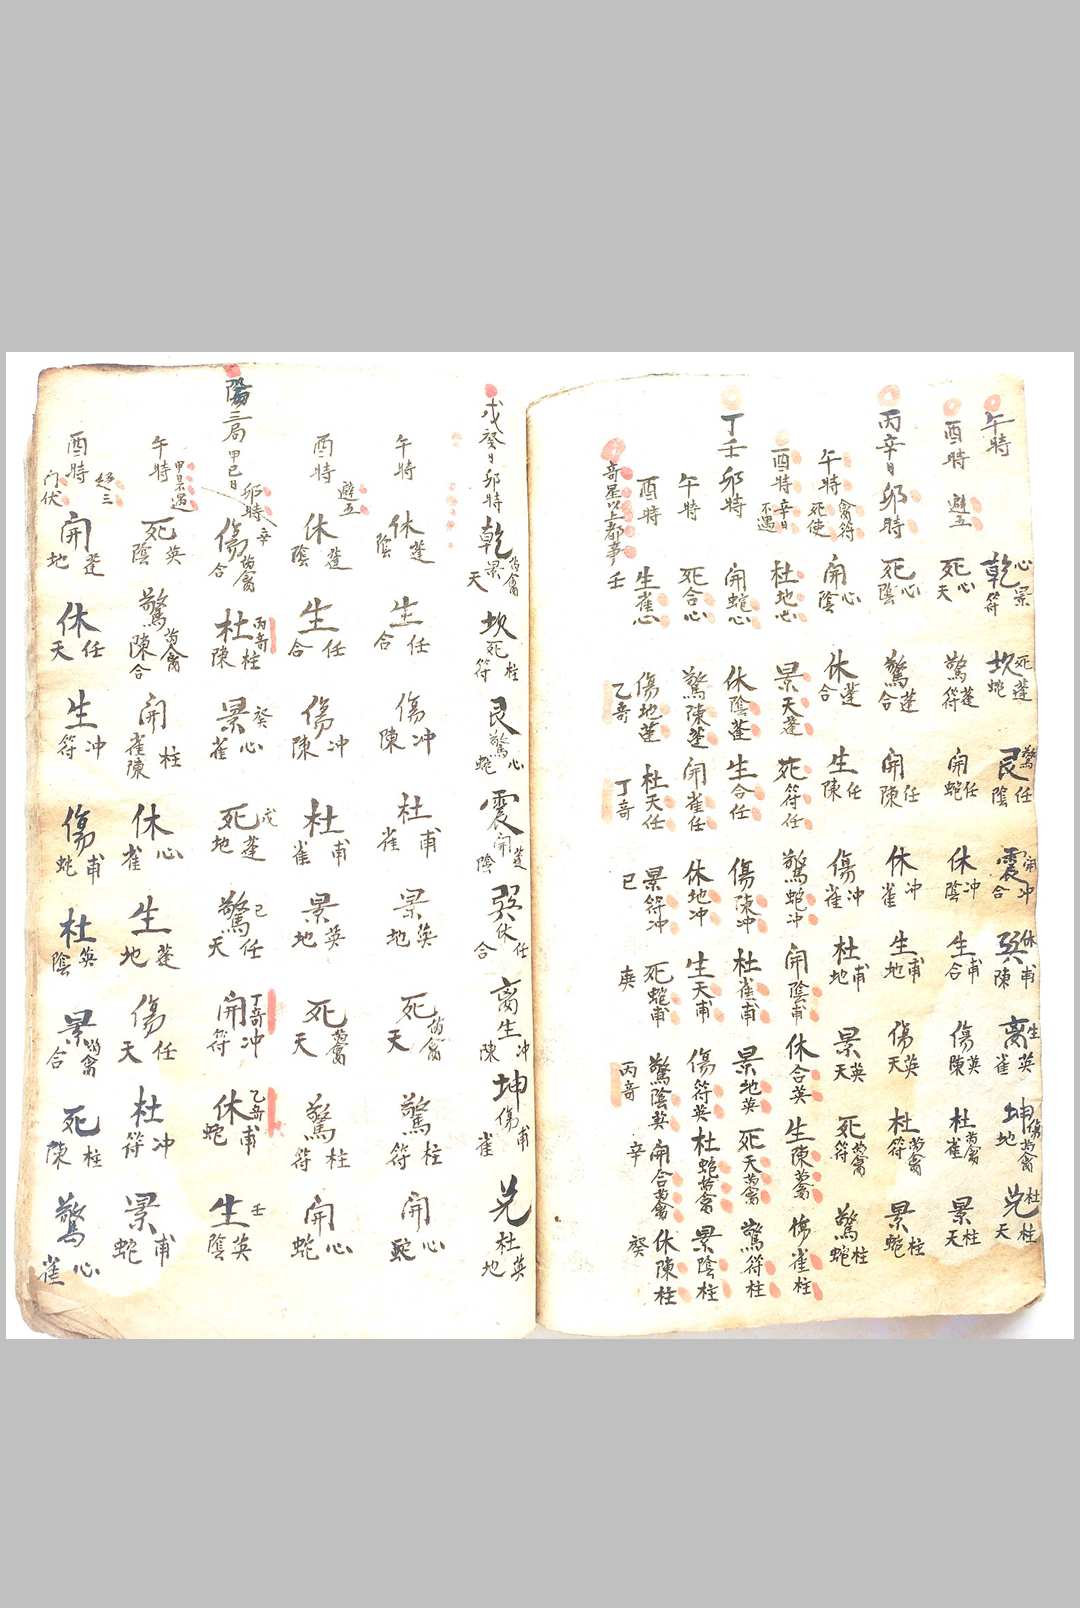 午時
乾 心 景 符
坎 死 蓬 蛇
艮 驚 任 陰
震 開 冲 合
巽 休 甫 陳
离 生 英 雀
坤 傷 芮禽 地
兑 杜 柱 天
酉時 避五
死 心 天
驚 蓬 符
開 任 蛇
休 冲 陰
生 甫 合
傷 英 陳
杜 芮禽 雀
景 柱 天
丙辛日 卯時
死 心 陰
驚 蓬 合
開 任 陳
休 冲 雀
生 甫 地
傷 英 天
杜 芮禽 符
景 柱 蛇
午時 禽符 死使
開 心 陰
休 蓬 合
生 任 陳
傷 冲 雀
杜 甫 地
景 英 天
死 芮禽 符
驚 柱 蛇
酉時 辛日不遇
杜地心
景天蓬
死符任
驚蛇冲
開陰甫
休合英
生陳芮禽
傷雀柱
丁壬 卯時
開蛇心
休陰蓬
生合任
傷陳冲
杜雀甫
景地英
死天芮禽
驚符柱
午時
死合心
驚陳蓬
開雀任
休地冲
生天甫
傷符英
杜蛇芮禽
景陰柱
酉時
生雀心
傷地蓬
杜天任
景符冲
死蛇甫
驚陰英
開合芮禽
休陳柱
奇星以上都事 壬 乙奇 丁奇 己 庚 丙奇 辛 癸
戊癸日 卯時
乾 景 芮禽 天
坎 死 柱 符
艮 驚 心 蛇
震 開 蓬 陰
巽 休 任 合
离 生 冲 陳
坤 傷 甫 雀
兑 杜 英 地
午時
休 蓬 陰
生 任 合
傷 冲 陳
杜 甫 雀
景 英 地
死 芮禽 天
驚 柱 符
開 心 蛇
酉時 避五
休 蓬 陰
生 任 合
傷 冲 陳
杜 甫 雀
景 英 地
死 芮禽 天
驚 柱 符
開 心 蛇
陽三局 甲己日 卯時
傷 辛 芮禽 合
杜 丙奇 柱 陳
景 癸 心 雀
死 戊 蓬 地
驚 己 任 天
開 丁奇 冲 符
休 乙奇 甫 蛇
生 壬 英 陰
午時 甲日不遇
死 英 陰
驚 芮禽 陳 合
開 柱 雀 陳
休 心 雀
生 蓬 地
傷 任 天
杜 冲 符
景 甫 蛇
酉時 门伏
開 蓬 地
休 任 天
生 冲 符
傷 甫 蛇
杜 英 陰
景 芮禽 合
死 柱 陳
驚 心 雀